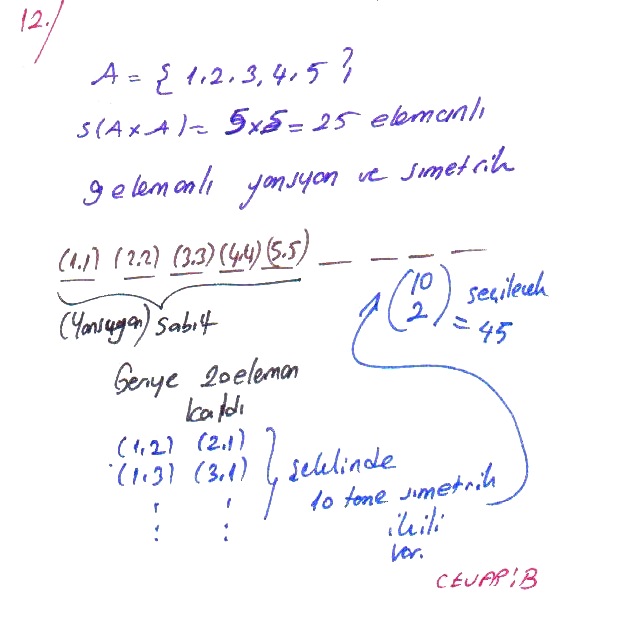 12.
A = { 1.2.3,4.5 }
s(A x A) = 5x5 = 25 elemanlı
9 elemanlı yansıyan ve simetrik
(1.1) (2.2) (3.3) (4.4) (5.5) _ _ _ _
(Yansıyan) sabit
(10 2) seçilecek
= 45
Geriye 20 eleman
kaldı
(1,2) (2,1)
(1,3) (3,1)
şeklinde
10 tane simetrik
ikili
var.
CEVAP:B